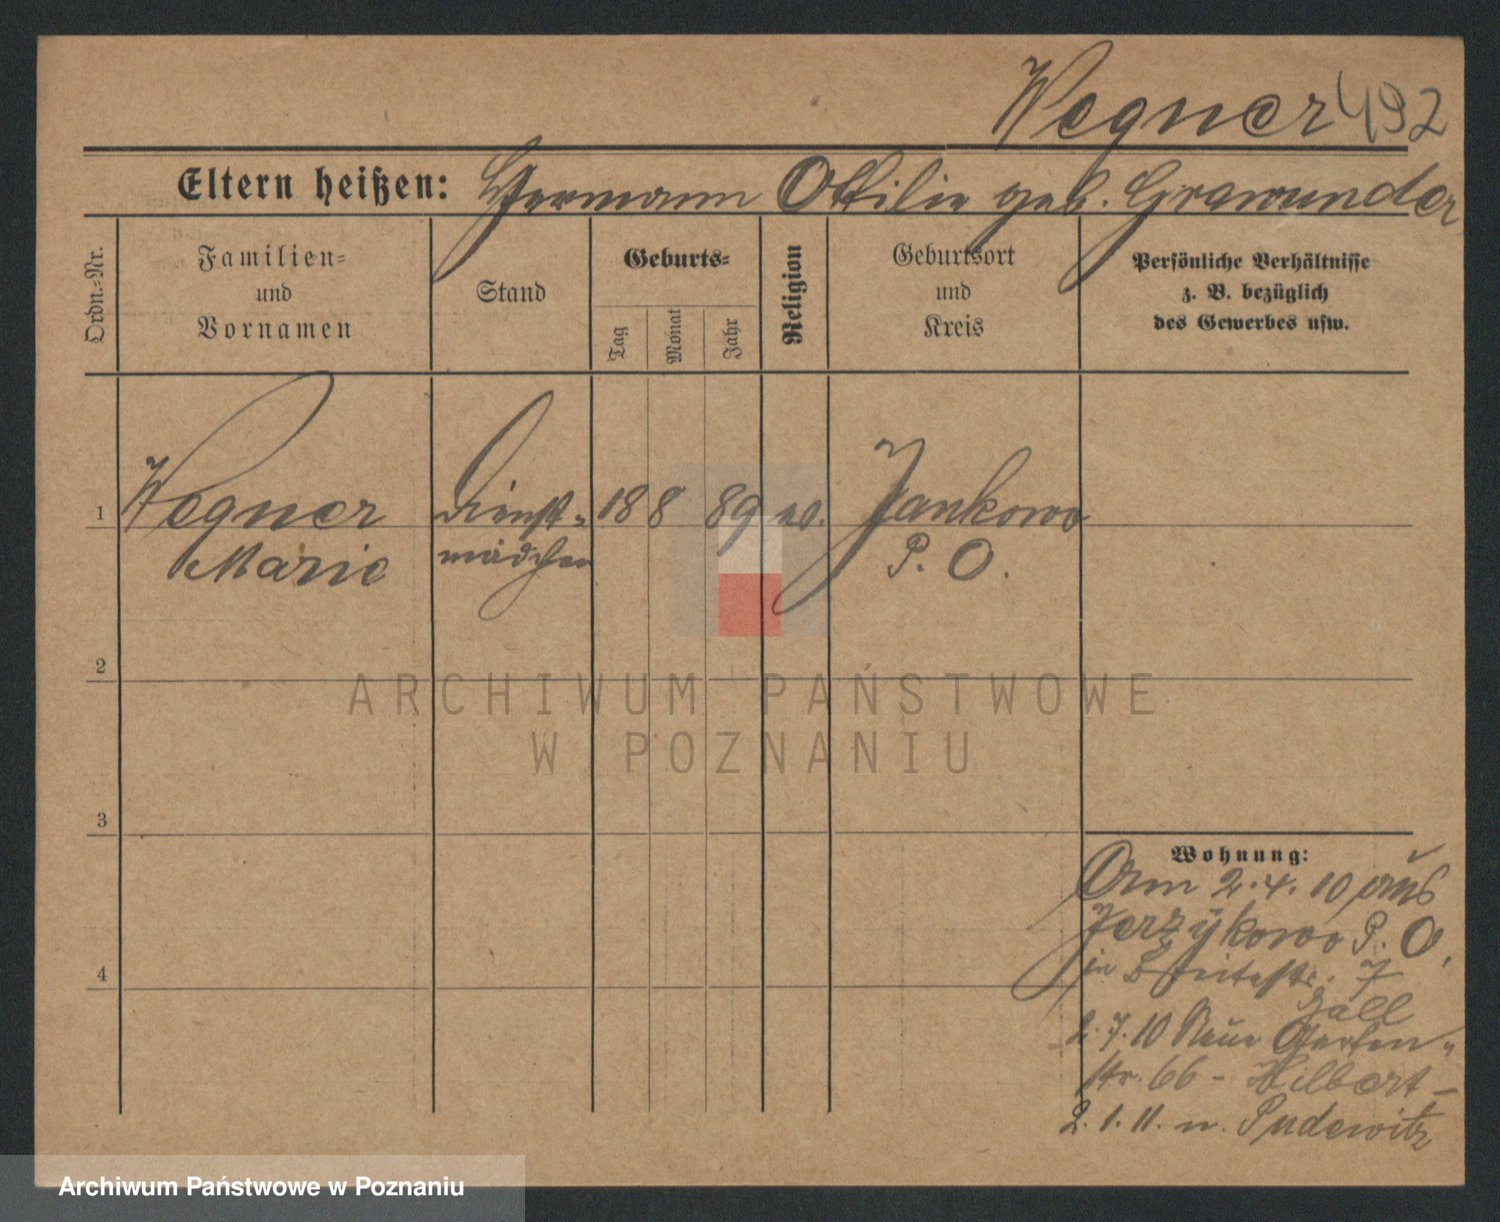 Wegner 492
Eltern heißen: Hermann Ottilie geb. Grawunder
Ordn.-Nr.
Familien-
und
Vornamen
Stand
Geburts-
Tag
Monat
Jahr
Religion
Geburtsort
und
Kreis
Persönliche Verhältnisse
z. B. bezüglich
des Gewerbes usw.
1
Wegner
Marie
Dienst-
mädchen
18 8 89
Jankowo
P. O.
2
ARCHIWUM PAŃSTWOWE
W POZNANIU
3
4
Wohnung:
2.4.10 aus
Jerzykowo P. O.
in Breitestr. 7
Zall
2.7.10 Neue Garten-
str. 66 - Hilbert -
2.1.11. n. Pudewitz
Archiwum Państwowe w Poznaniu